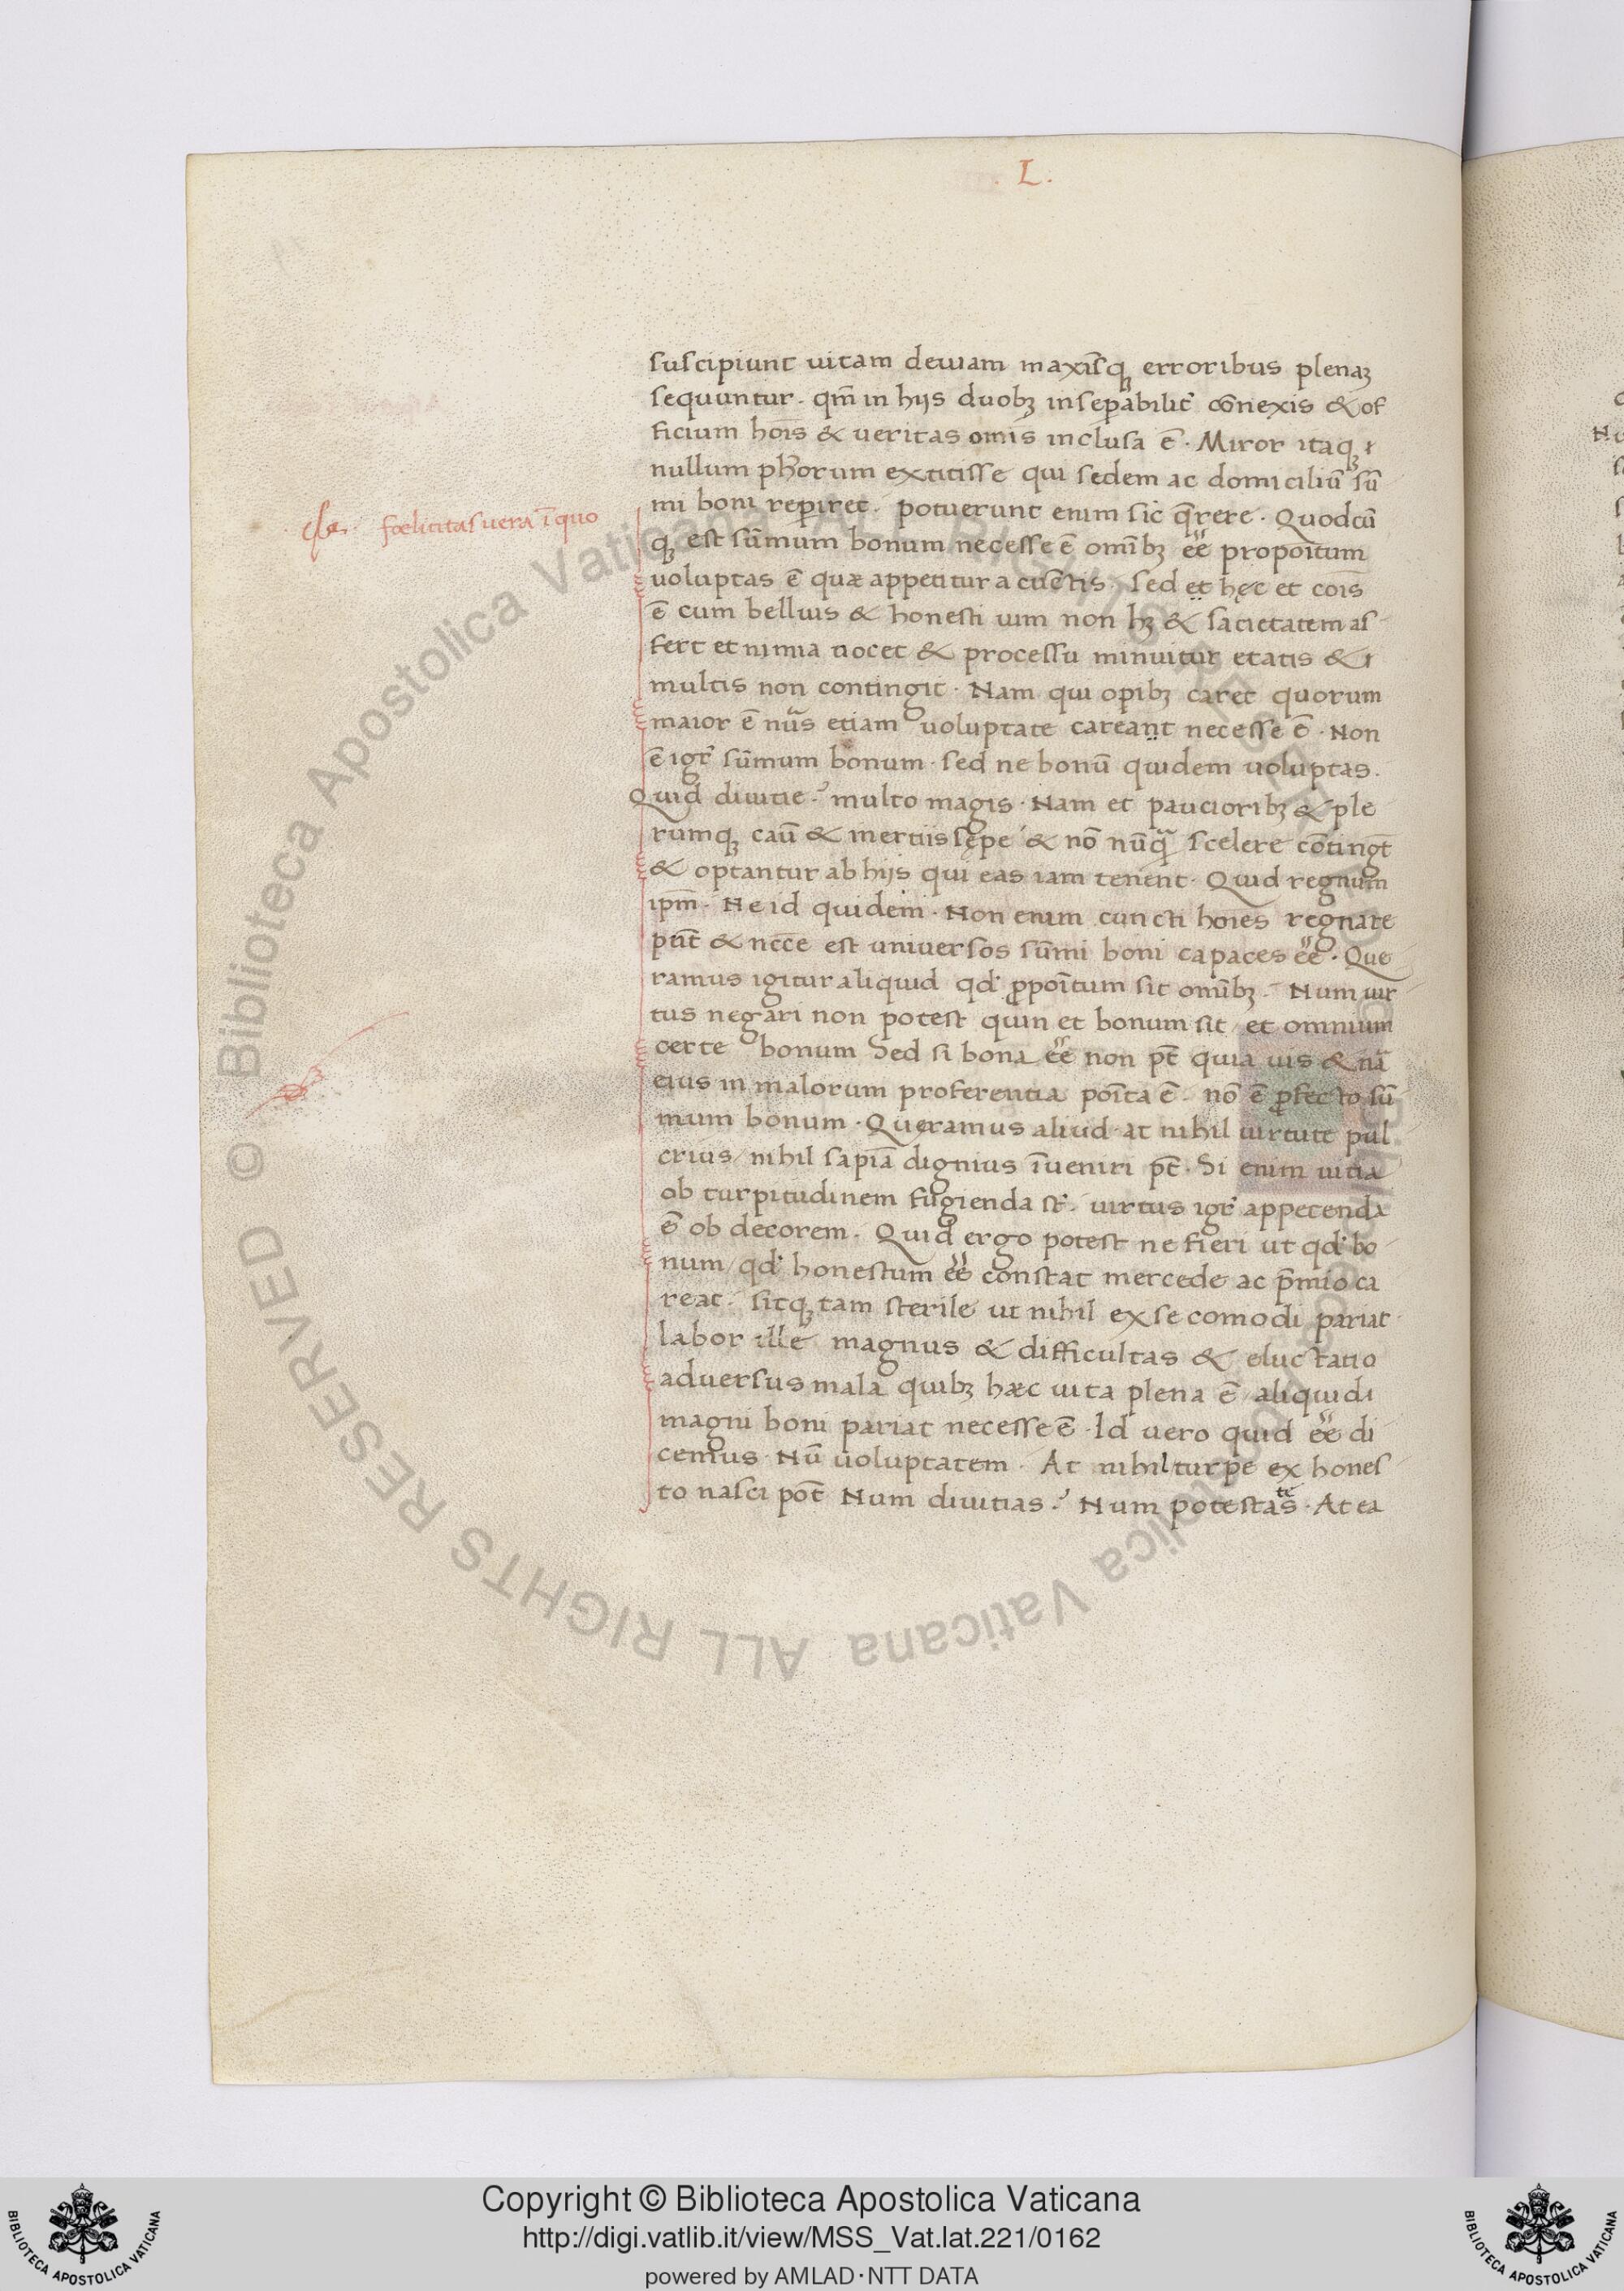 . L .
suscipiunt uitam deuiam maxi͞sqꝫ erroribus plenaꝫ
sequuntur. qm̄ in hijs duobꝫ insep̱abilit᷑ co͞nexis & of
ficium hōis & ueritas om̄is inclusa ē. Miror itaqꝫ
nullum ph̄orum extitisse qui sedem ac domiciliū sū
mi boni rep̱iret. potuerunt enim sic q̄rere. Quodcū
cla. fœlicitas uera ī quo
qꝫ est sūmum bonum necesse ē omı̄bꝫ ēē propoı̄tum
uoluptas ē quæ appetitur a cūctis. sed et hęc et cōis
ē cum belluis & honesti uim non hꝫ & sacietatem af
fert et nimia nocet & processu minuitur etatis &
multis non contingit. Nam qui op̱ibꝫ caret quorum
maior ē nūs etiam uoluptate careant necesse ē. Non
ē igr᷑ sūmum bonum. sed ne bonū quidem uoluptas.
Quid diuitie? multo magis. Nam et paucioribꝫ & ple
rumqꝫ caū & inertiis sępe & nō nūq̄ scelere cōtingt̄
& optantur ab hijs qui eas iam tenent. Quid regnum
ipm̄. Ne id quidem. Non enim cuncti hoīes regnare
pn̄t & nēce est uniuersos sūmi boni capaces ēē. Que
ramus igitur aliquid qd᷑ ꝓpoı̄tum sit omı̄bꝫ. Num uir
tus negari non potest quin et bonum sit / et omnium
certe bonum Sed si bona ēē non pt̄ quia uis & nā
eius in malorum proferentia poı̄ta ē. nō ē ꝓfecto sū
mum bonum. Queramus aliud. at nihil uirtute pul
crius / nihil sapiā dignius īueniri pt̄. Si enim uitia
ob turpitudinem fugienda st᷑. uirtus igr᷑ appetenda
ē ob decorem. Quid ergo potest ne fieri ut qd᷑ bo
num / qd᷑ honestum ēē constat mercede ac p̄mio ca
reat. sitqꝫ tam sterile ut nihil ex se comodi pariat
labor ille magnus & difficultas & eluctatio
aduersus mala quibꝫ hæc uita plena ē aliquid
magni boni pariat necesse ē. Id uero quid ēē di
cemus. Nū uoluptatem. At nihil turpe ex hones
to nasci pōt Num diuitias? Num potestates. At ea
© Biblioteca Apostolica Vaticana ALL RIGHTS RESERVED
Copyright © Biblioteca Apostolica Vaticana
http://digi.vatlib.it/view/MSS_Vat.lat.221/0162
powered by AMLAD·NTT DATA
BIBLIOTECA APOSTOLICA VATICANA
BIBLIOTECA APOSTOLICA VATICANA